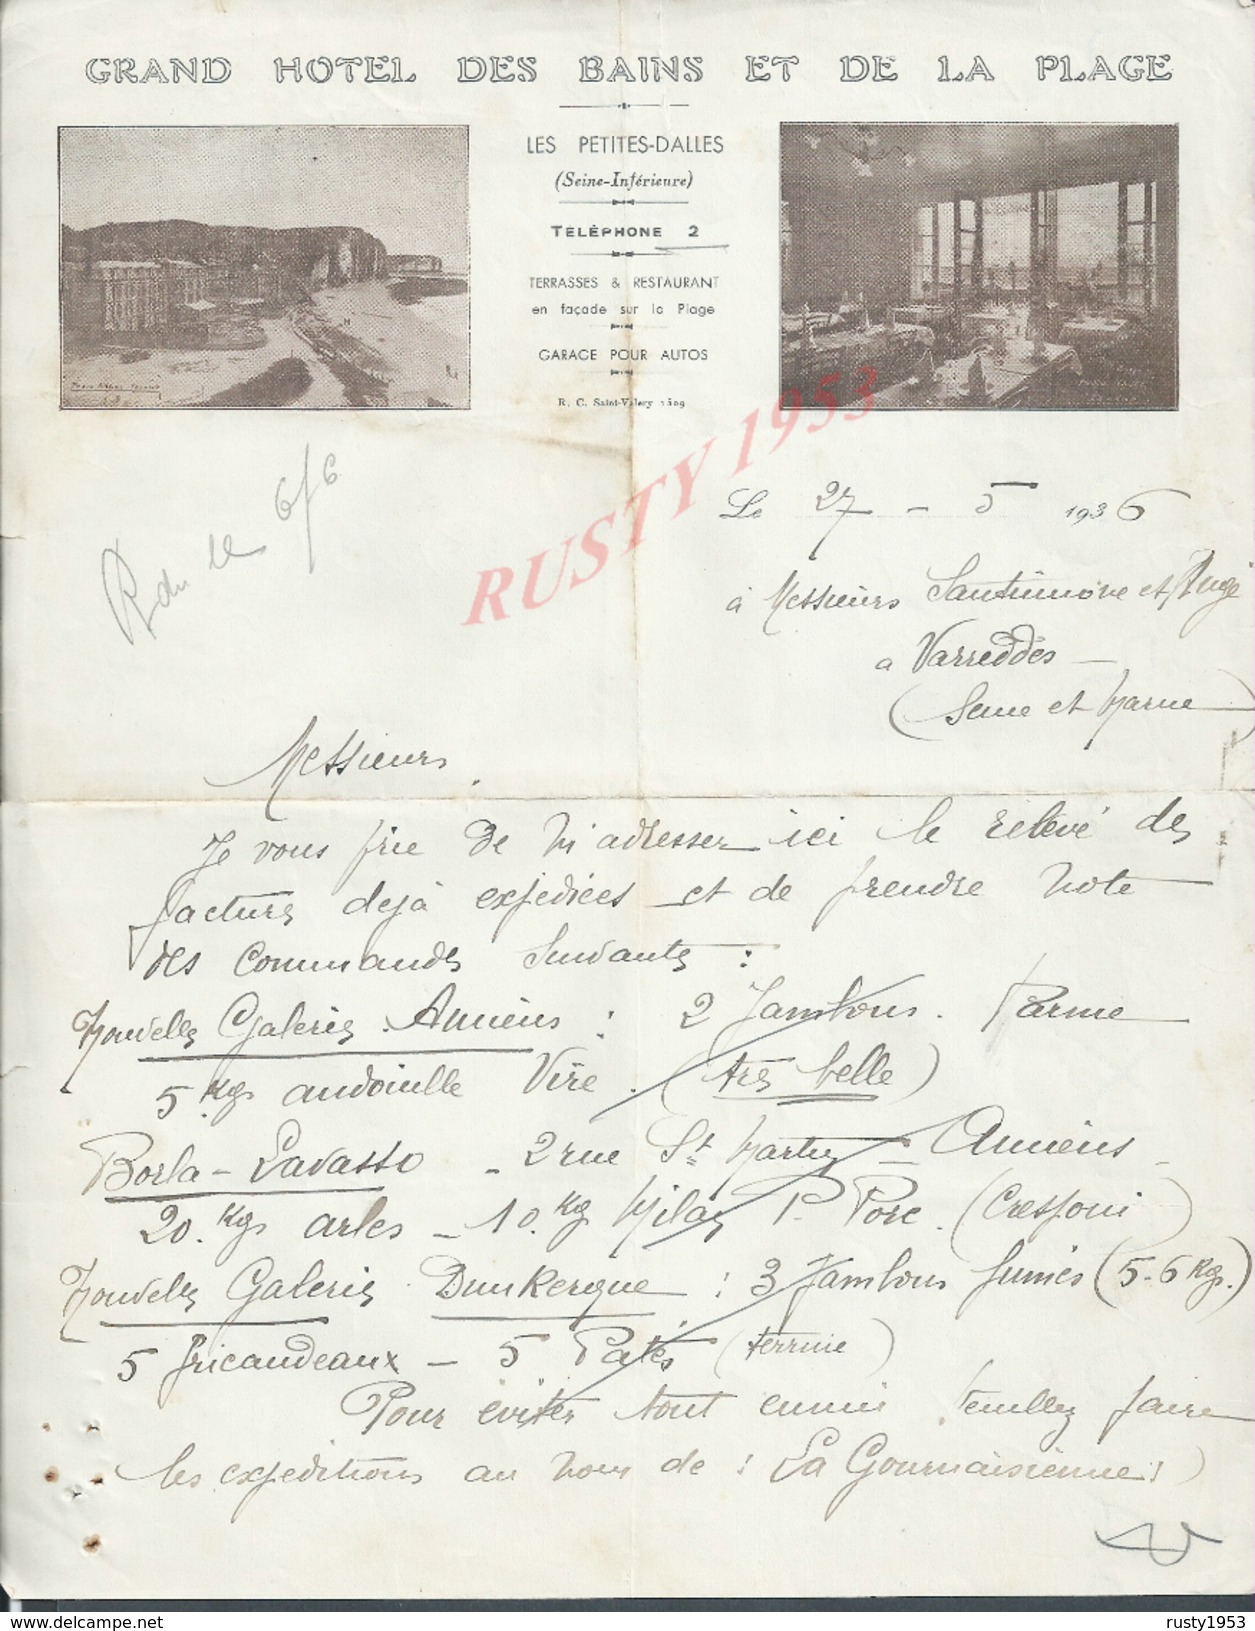 GRAND HOTEL DES BAINS ET DE LA PLAGE
LES PETITES-DALLES
(Seine-Inférieure)
TELÉPHONE 2
TERRASSES & RESTAURANT
en façade sur la Plage
GARAGE POUR AUTOS
R. C. Saint-Valery 1809
RUSTY 1953
R du le 6/6
Le 27 - 5 1936
à Messieurs et
a Varreddes
(Seine et Marne)
Messieurs
Je vous prie de m'adresser ici le relevé des
factures dejà expediées et de prendre note
des commandes suivantes :
Nouvelles Galeries Amiens : 2 Jambons Parme
5 Kgs andouille Vire (très belle)
Borla - Lavasso - 2 rue St Martin - Amiens
20 Kgs arles - 10 Kg Milan P. Porc. (Cresponi)
Nouvelles Galeries Dunkerque : 3 Jambons fumés (5-6 Kgs.)
5 fricandeaux - 5 Patés (terrine)
Pour éviter tout ennui veuillez faire
les expeditions au nom de : La Gournaisienne !
rusty1953